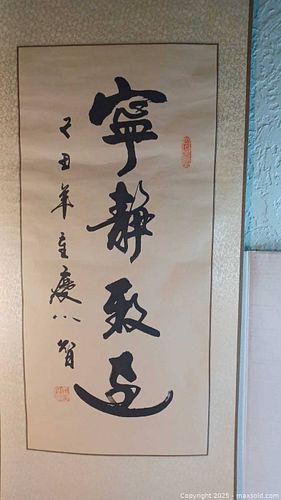 寧靜致遠
己丑年重慶
Copyright 2025 - maxsold.com